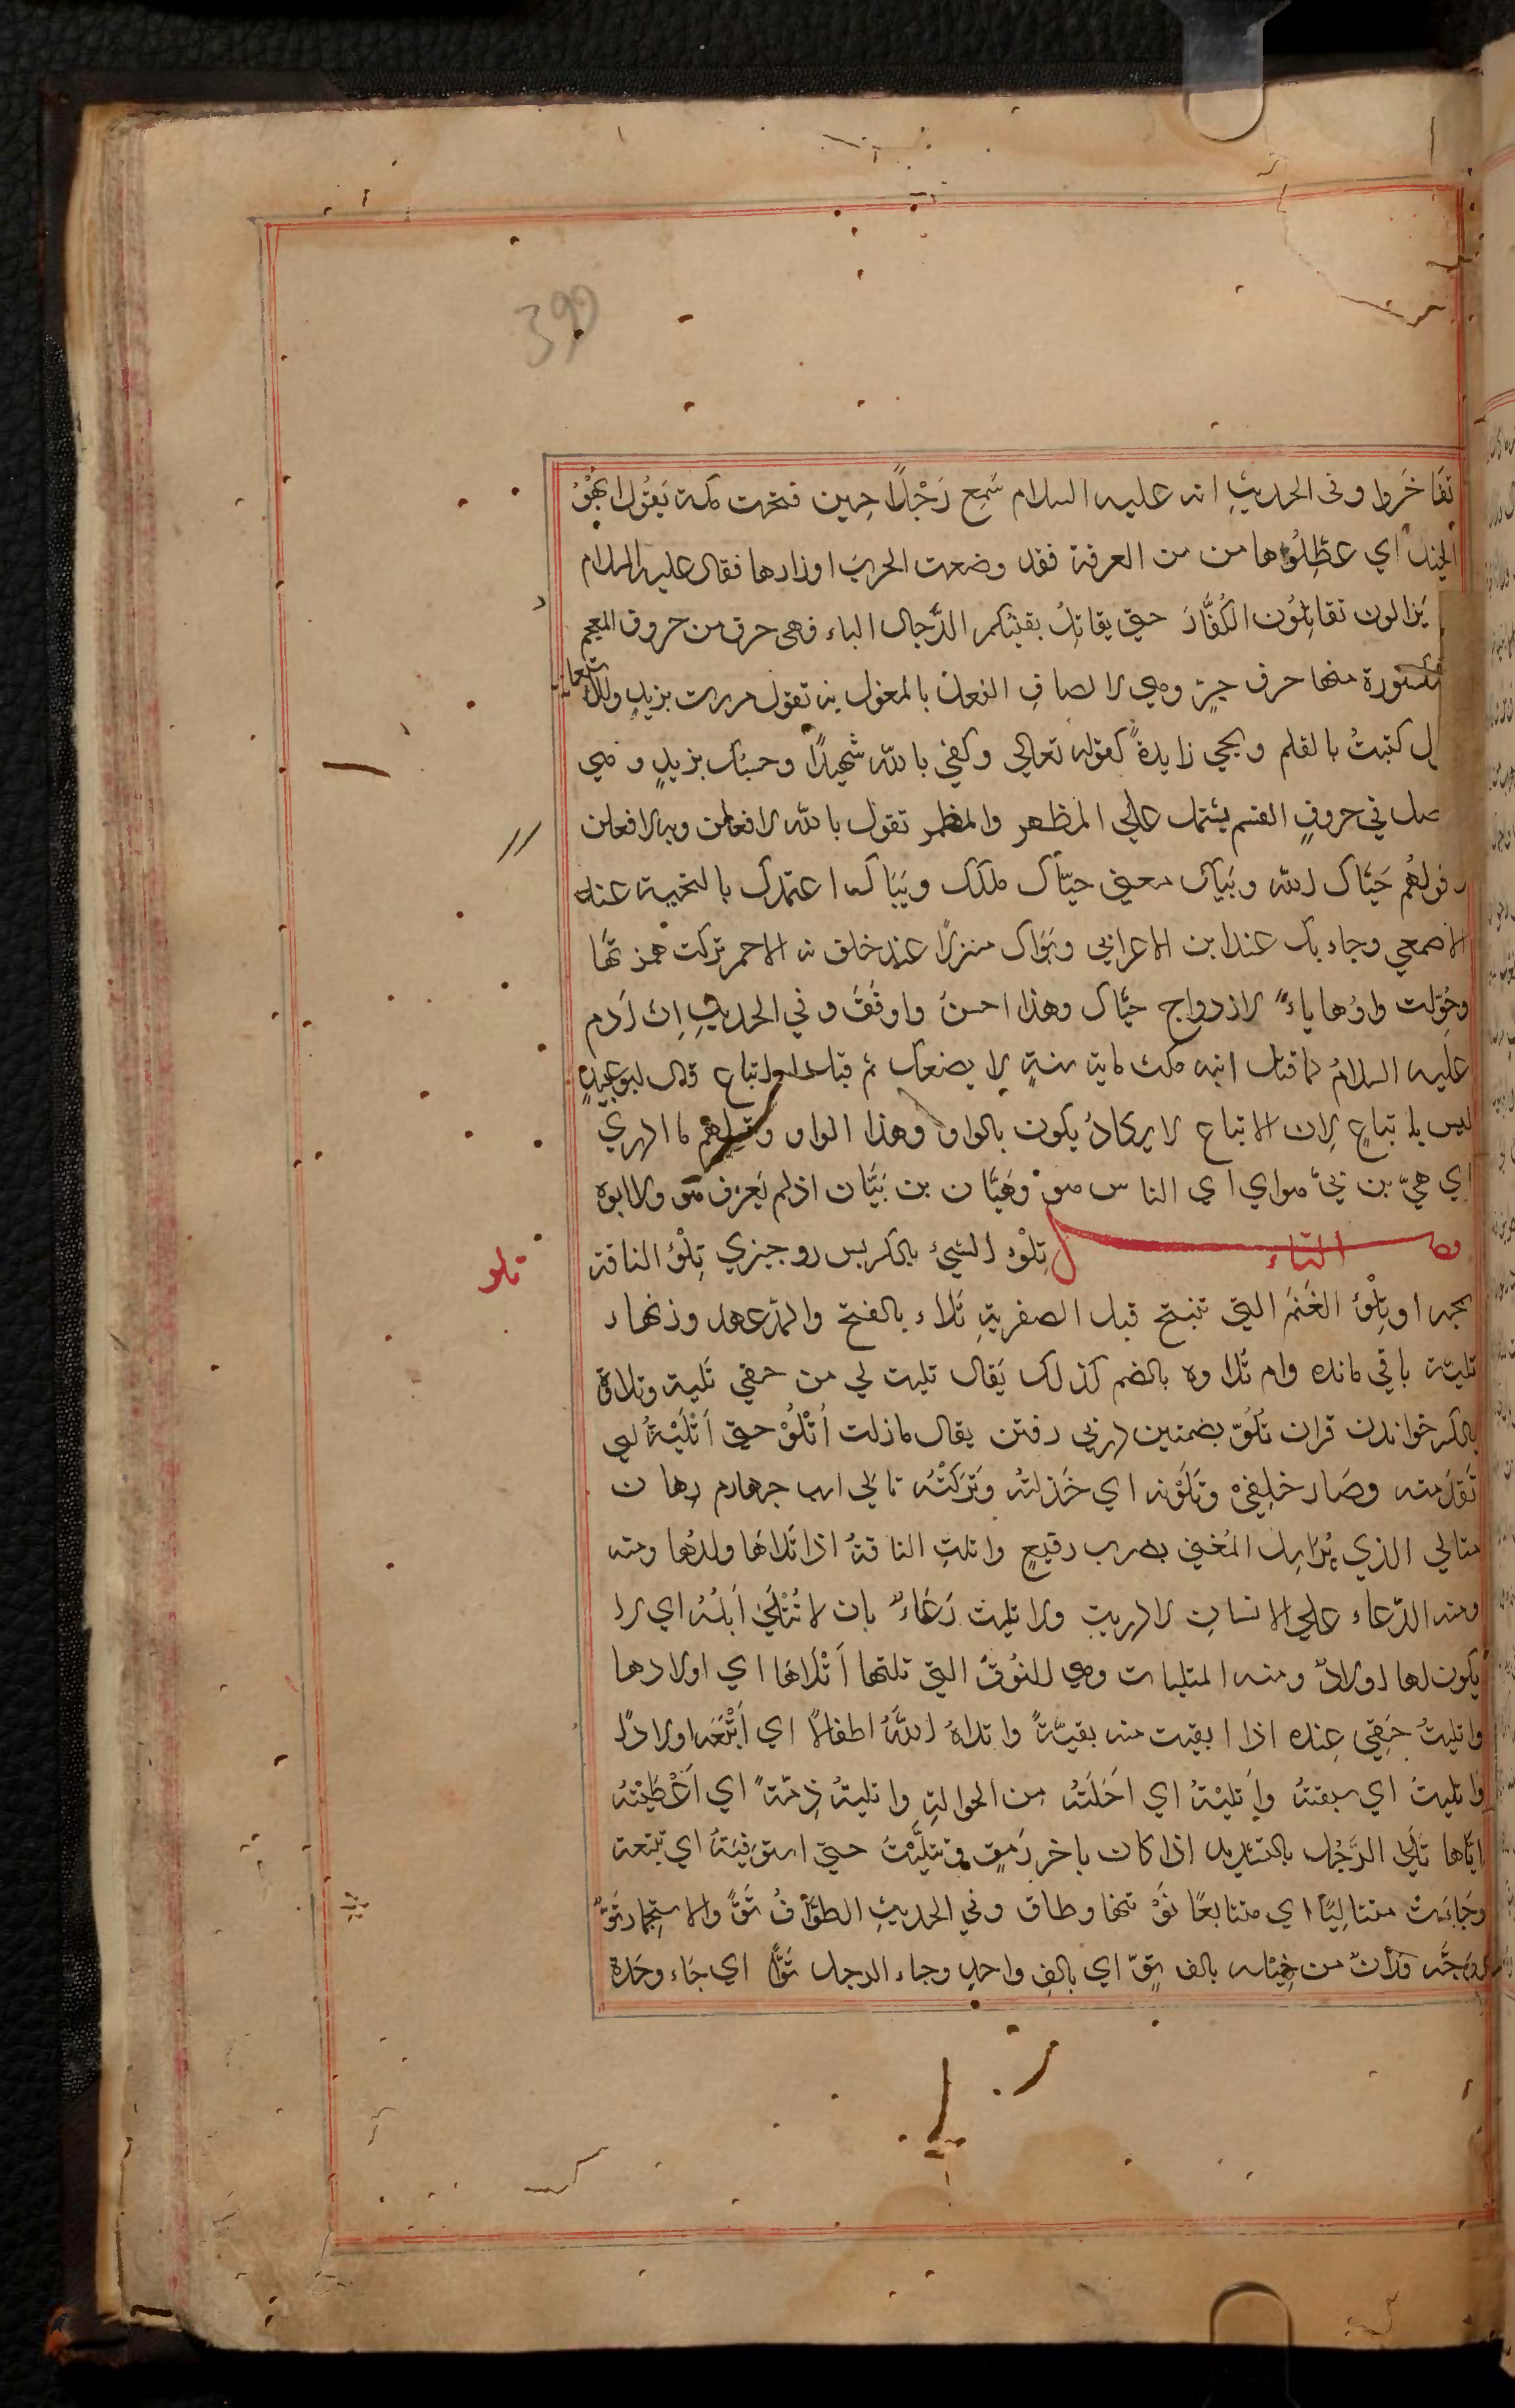 399
تفَاخَروا وفى الحديثِ انه عليه السلام سَمِع رَجُلًا حِين فتحت مكة يَقُول ابْهُوُ
الخيل اي عطِّلُوها من من العرفة فقد وضعت الحربَ اوزارها فقال عليه السلام
يَزالون تقاتِلُون الكُفَّارَ حتى يقاتِلُ بقيتكم الدَّجال الباء فهى حرف من حروف المعجم
مكسورة منها حرف جرٍ وهي لا لصاقِ الفعل بالمفعول به تقول مررت بزيدٍ وللاستعا
ل كتبتُ بالقلم ويجي زايدةً كقوله تعالي وكفي بالله شهيدًا وحسبُك بزيدٍ و هي
صل في حروفِ القسم يشتمل علي المظهر والمضمر تقول بالله لا فعلن وبه لا فعلن
وقولُهُم حَيَّاك الله وبَيَّاك معني حيَّاك ملكك وبَيَّاك اعتمدك بالتحية عند
الاصمعي وجاء بك عند ابن الاعرابي وبَوَّاك منزلًا عند خلف نه الاحمر تركت همزتها
وحُوِّلت واوُها ياءً لازدواج حيَّاك وهذا احسنُ واوفَقُ و في الحديثِ اِن اَدم
عليه السلامُ لما قتل ابنه مكث ماية سنةٍ لا يضحك ثم قيل له اتباع قال ابو عبيدٍ
ليس باتباعٍ لان الاتباع لا يكادُ يكون بالواو وهذا الواو وقولهم ما ادري
اي هيّ بن بيّ هو اي اي الناس هو وهَيَّان بن بَيَّان اذلم يَعرَف هو ولا ابوه
فصل التاء تِلْوه الشيْ بالكر پس رو چيزي تِلْوُ الناقة
تلو
بچه او وتِلْوُ الغَنَم التي تنتج قبل الصفرية تَلاء بالفتح والمد عهد وزنهار
تليّة باقي مانده وام تُلاوة بالضم كذلك يَقال تليت لي من حقي تَلية وتلاوة
بالكر خواندن قران تُلُوّ بضمتين در پي رفتن يقال مازلت اَتْلُوْ حتى اَتْلَيْتهُ اي
تقدَمته وصَار خلِفيْ وتَلَوْته اي خَذلتهُ وتَرَكْتُه تا لي اسب چهارم رهان
متالي الذي يُرَاسِل المُغني بصوت رفيعٍ واتلتِ الناقهُ اذا تَلاهَا ولدُها ومنه
ومنه الدّعاء علي الانسان لا دريت ولا تليت دَعَاءٌ بان لا تُتْلِيَ اَبلهُ اي لا
يكون لها اولادٌ ومنه المتليات وهي للنُوق التي تلتها اَتْلَاهَا اي اولادها
واتليتُ حَقِي عِنده اذا ابقيت منه بقيَّةً واتلاهُ اللهُ اطفالًا اي اَتْبَعَه اولادًا
واتليتُ اي سبقتهُ واَتليْتهُ اي احَلتُه من الحوالةِ واتليتهُ ذِمّةً اي اَعْطَيْتهُ
اِيَّاها تَلَّي الرَّجُل بالتشديد اذا كان باخر رَمقٍ وتتلَّيْتُ حتى استوفَيَتهُ اي تتبعته
وجَاءَتْ متتاليًا اي متتابعًا تَوْ تنها وطاق وفي الحديثِ الطوَّافُ تَوٌّ والاستجمار تَوٌّ
من خيله بالف تَوّ اي بالفِ واحدٍ وجاء الرجل تَوًّا اي جَاء وحَدة